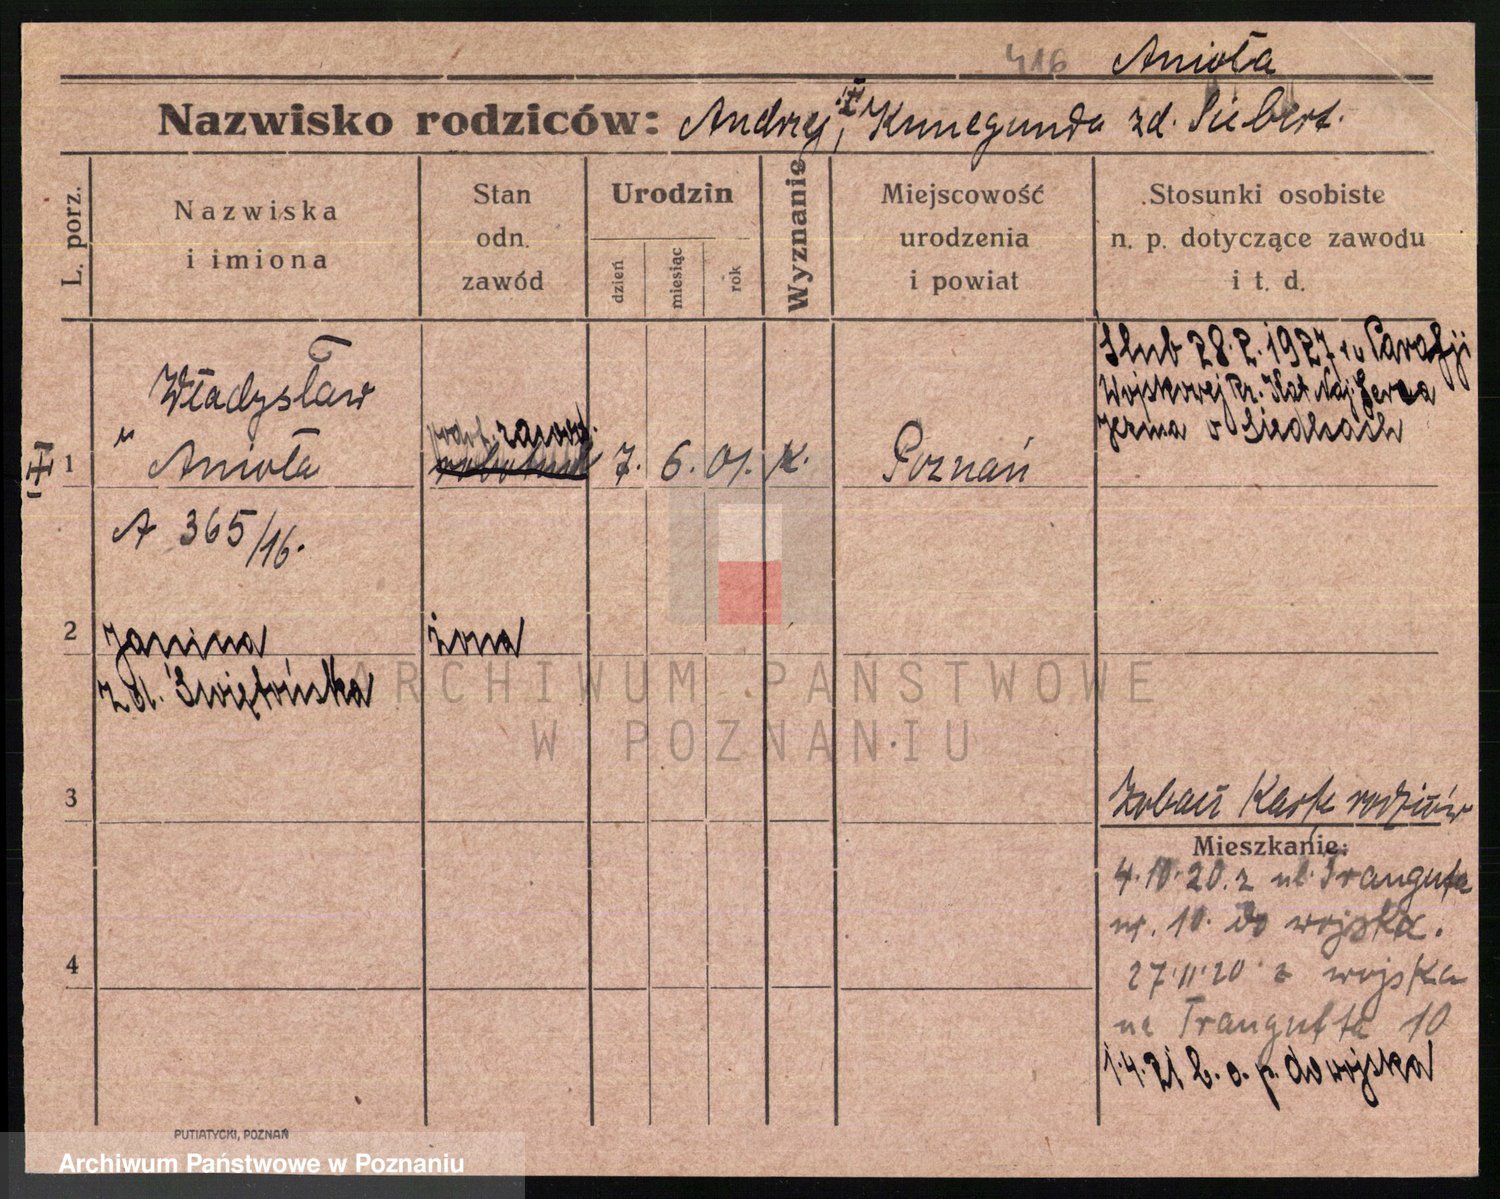 416 Anioła
Nazwisko rodziców: Andrzej, Kunegunda zd. Siebert.
L. porz.
Nazwiska
i imiona
Stan
odn.
zawód
Urodzin
dzień
miesiąc
rok
Wyznanie
Miejscowość
urodzenia
i powiat
Stosunki osobiste
n. p. dotyczące zawodu
i t. d.
1
Władysław
" Anioła
A 365/16.
podof. zawod.
robotnik
7. 6. 01. k.
Poznań
Slub 28.2.1927 w Parafji
Wojskowej Rz. Kat. Naj. Serca
Jezusa w Siedlcach
2
Janina
zd. Święt
żona
3
Zobacz Kartę rodziców
Mieszkanie:
4.10.20. z ul. Traugutta
nr. 10. do wojska.
27.11.20 z wojska
na Traugutta 10
1.4.21 b. o. p. do wojska
4
PUTIATYCKI, POZNAŃ
ARCHIWUM PAŃSTWOWE
W POZNANIU
Archiwum Państwowe w Poznaniu